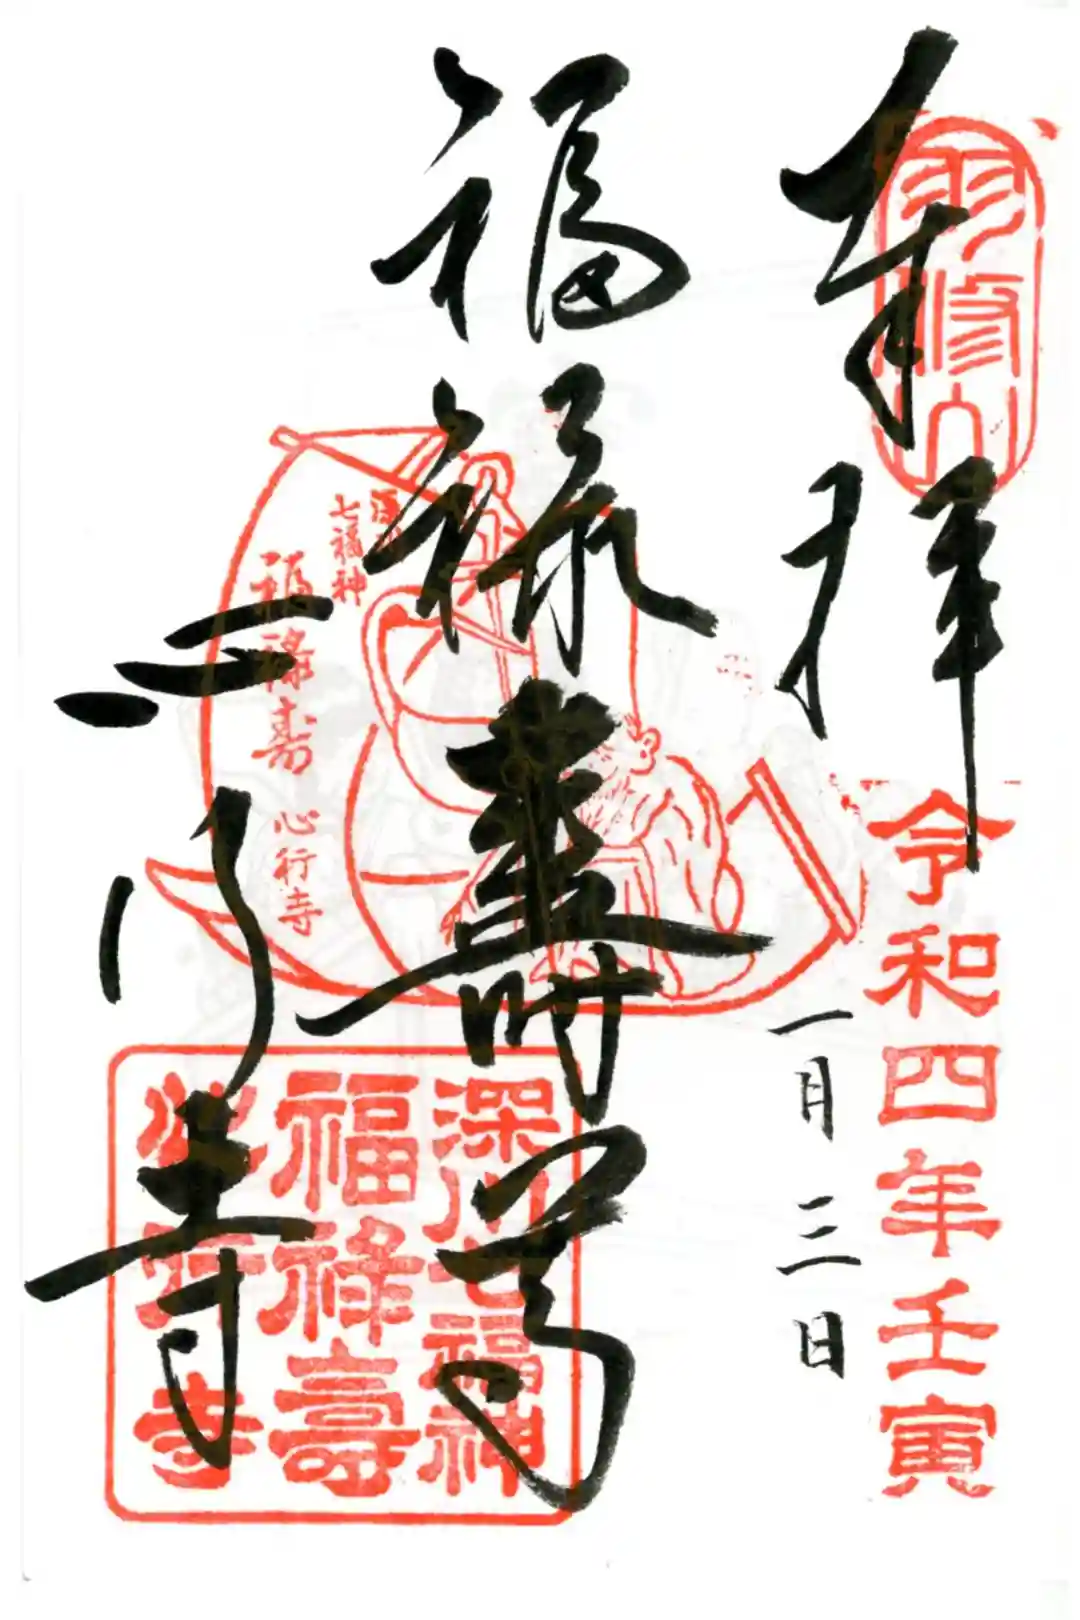 奉拝
双修山
令和四年壬寅
一月三日
福禄壽尊
深川
七福神
福禄寿 心行寺
心行寺
深川七福神
福禄壽
心行寺